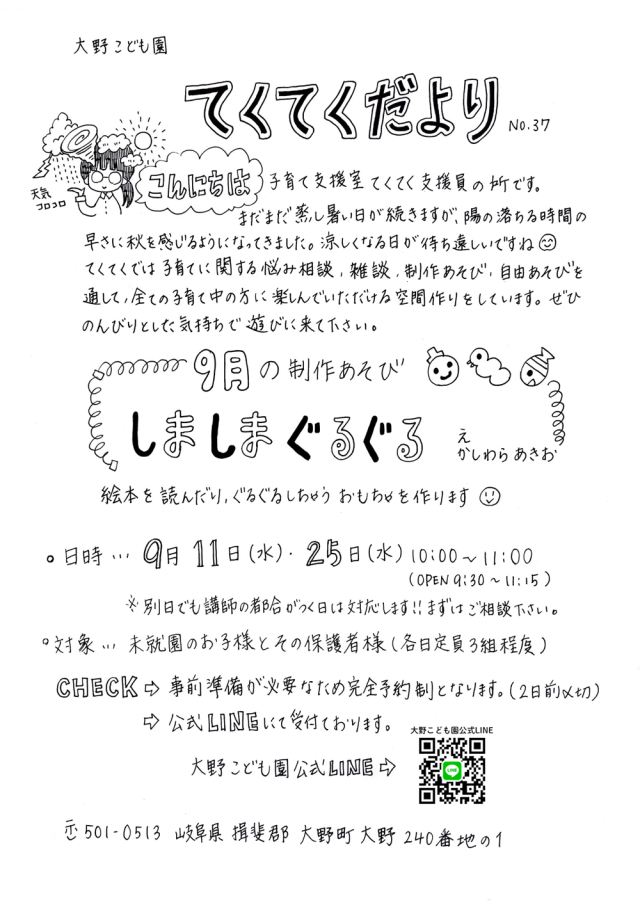 大野こども園
てくてくだより NO.37
天気
コロコロ
こんにちは 子育て支援室てくてく支援員の所です。
まだまだ蒸し暑い日が続きますが、陽の落ちる時間の
早さに秋を感じるようになってきました。涼しくなる日が待ち遠しいですね
てくてくでは子育てに関する悩み相談、雑談、制作あそび、自由あそびを
通して、全ての子育て中の方に楽しんでいただける空間作りをしています。ぜひ
のんびりとした気持ちで遊びに来て下さい。
9月の制作あそび
しましまぐるぐる
え
かしわらあきお
絵本を読んだり、ぐるぐるしちゃうおもちゃを作ります
○日時… 9月11日(水)・25日(水) 10:00〜11:00
(OPEN 9:30〜11:15)
※別日でも講師の都合がつく日は対応します!!まずはご相談下さい。
○対象… 未就園のお子様とその保護者様(各日定員3組程度)
CHECK ⇨ 事前準備が必要なため完全予約制となります。(2日前〆切)
⇨ 公式LINEにて受付ております。
大野こども園公式LINE
大野こども園公式LINE ⇨
LINE
〒501-0513 岐阜県 揖斐郡 大野町大野 240番地の1